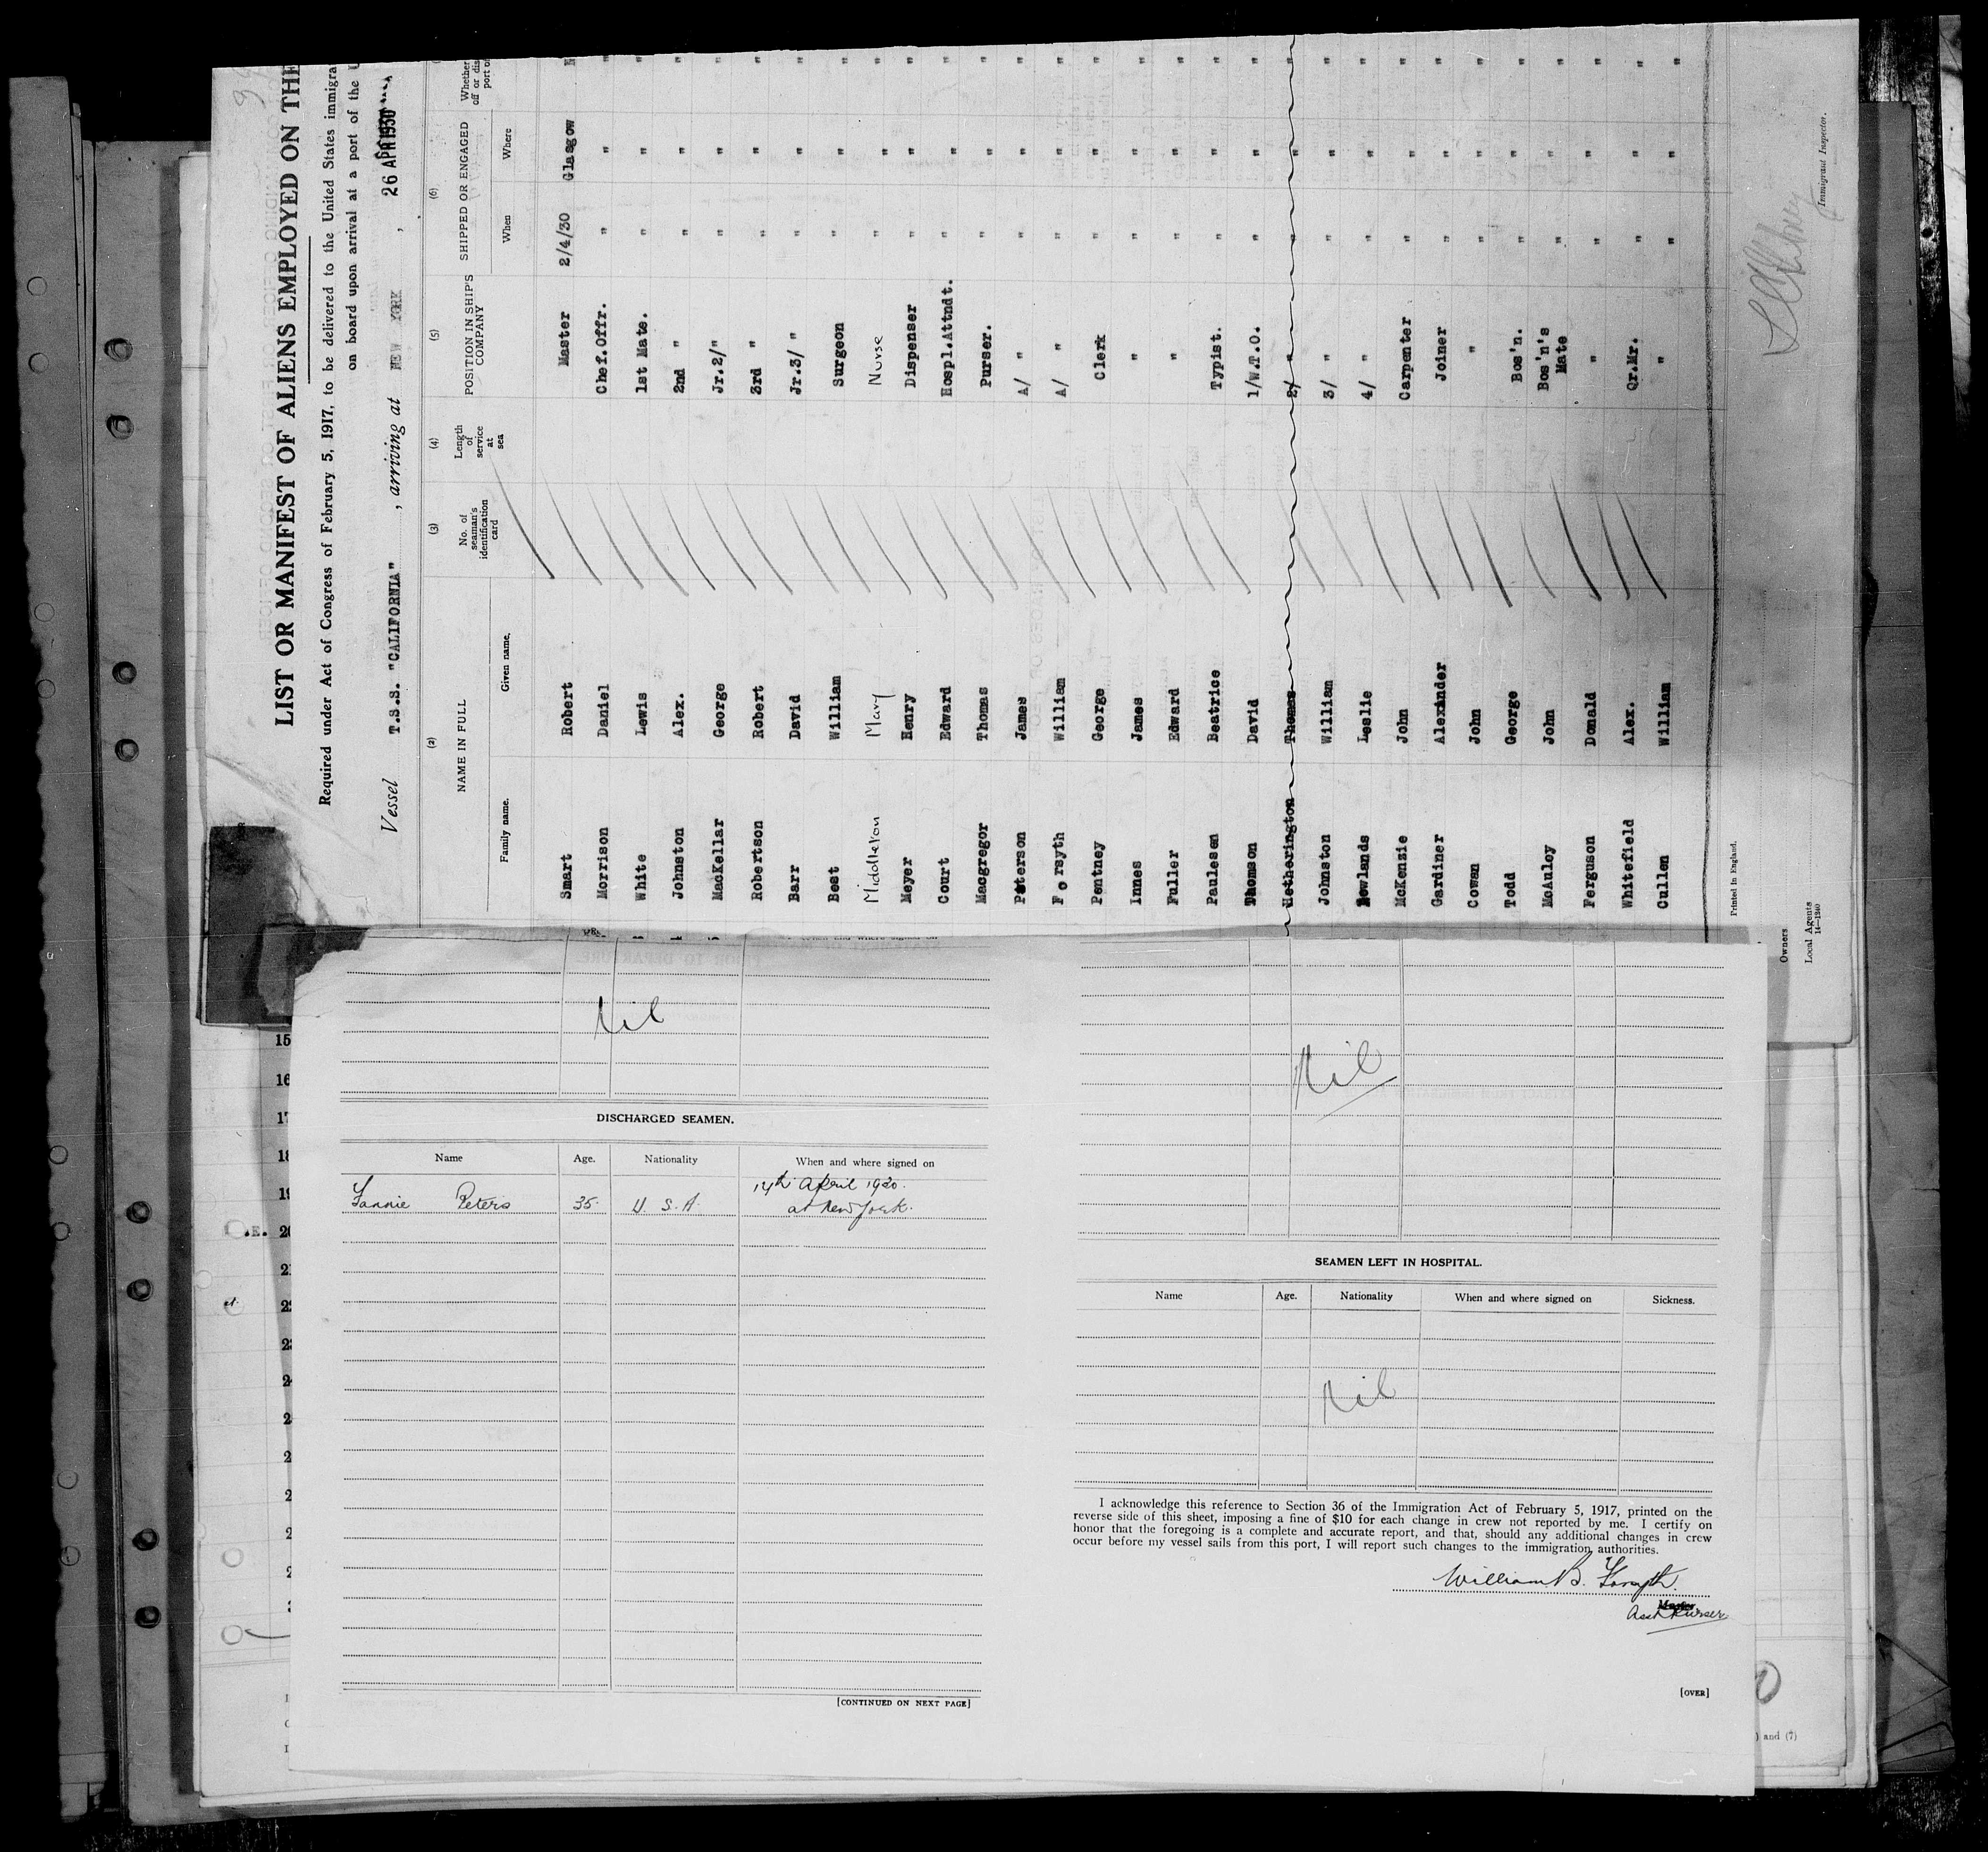 LIST OR MANIFEST OF ALIENS EMPLOYED ON THE
Required under Act of Congress of February 5, 1917, to be delivered to the United States immigra
on board upon arrival at a port of the U
Vessel T.S.S. "CALIFORNIA" , arriving at NEW YORK , 26 APR 1930
(2) (3) (4) (5) (6)
NAME IN FULL No. of seaman's identification card Length of service at sea POSITION IN SHIP'S COMPANY SHIPPED OR ENGAGED Whether
Family name. Given name. When Where
Smart Robert Master 2/4/30 Glasgow
Morrison Daniel Chef.Offr. " " "
White Lewis 1st Mate. " " "
Johnston Alex. 2nd " " " "
MacKellar George Jr.2/" " " "
Robertson Robert 3rd " " " "
Barr David Jr.3/ " " " "
Best William Surgeon " " "
Middleton Mary Nurse " " "
Meyer Henry Dispenser " " "
Court Edward Hospl.Attndt. " " "
Macgregor Thomas Purser. " " "
Paterson James A/ " " " "
Forsyth William A/ " " " "
Pentney George Clerk " " "
Innes James " " " "
Fuller Edward " " " "
Paulesen Beatrice Typist. " " "
Thomson David 1/W.T.O. " " "
Hetherington Thomas 2/ " " " "
Johnston William 3/ " " " "
Newlands Leslie 4/ " " " "
McKenzie John Carpenter " " "
Gardiner Alexander Joiner " " "
Cowan John " " " "
Todd George Bos'n. " " "
McAuloy John Bos'n's Mate " " "
Ferguson Donald " " " "
Whitefield Alex. Qr.Mr. " " "
Cullen William " " " "
Printed in England.
Owners
Local Agents
14—1240
Immigrant Inspector.
Nil
DISCHARGED SEAMEN.
Name Age. Nationality When and where signed on
14th April 1930.
Fannie Peters 35. U.S.A. at New York.
[CONTINUED ON NEXT PAGE]
Nil
SEAMEN LEFT IN HOSPITAL.
Name Age. Nationality When and where signed on Sickness.
Nil
I acknowledge this reference to Section 36 of the Immigration Act of February 5, 1917, printed on the
reverse side of this sheet, imposing a fine of $10 for each change in crew not reported by me. I certify on
honor that the foregoing is a complete and accurate report, and that, should any additional changes in crew
occur before my vessel sails from this port, I will report such changes to the immigration authorities.
William B. Forsyth.
Master
Asst Purser
[OVER]
15
16
17
18
19
.E. 20
) and (7)